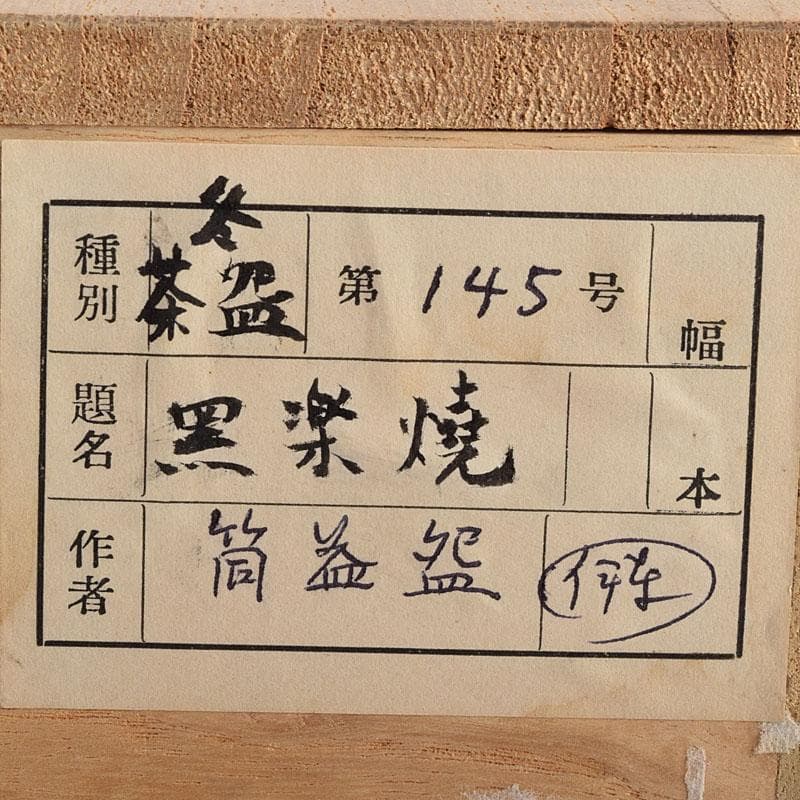 種別 冬 茶盌 第 145 号 幅
題名 黒楽焼 本
作者 筒茶盌